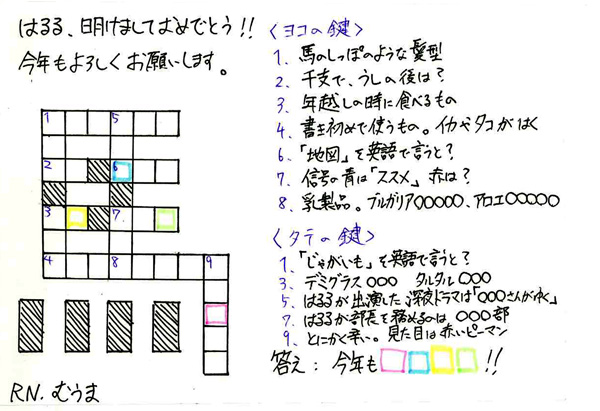 はるる、明けましておめでとう!!
今年もよろしくお願いします。
〈ヨコの鍵〉
1、馬のしっぽのような髪型
2、干支で、うしの後は?
3、年越しの時に食べるもの
4、書き初めで使うもの。イカやタコがはく
6、「地図」を英語で言うと?
7、信号の青は「ススメ」赤は?
8、乳製品。ブルガリア○○○○○、アロエ○○○○○
〈タテの鍵〉
1、「じゃがいも」を英語で言うと?
3、デミグラス○○○ タルタル○○○
5、はるるが出演した深夜ドラマは「○○○さんがゆく」
7、はるるが部長を務めるのは○○○部
9、とにかく辛い。見た目は赤いピーマン
答え:今年も□□□□!!
1 5
2 6
3 7
4 8 9
RN. むうま